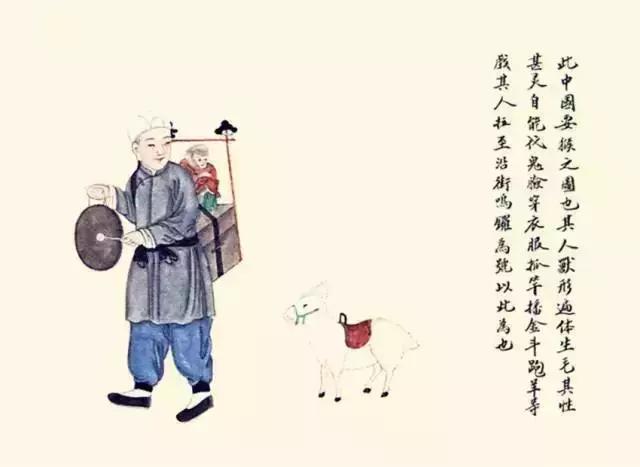 此中國耍猴之圖也其人獸形遍体生毛其性
甚灵自能代鬼臉穿衣服抓竿播金斗跑羊等
戲其人拉至沿街鳴鑼為號以此為也